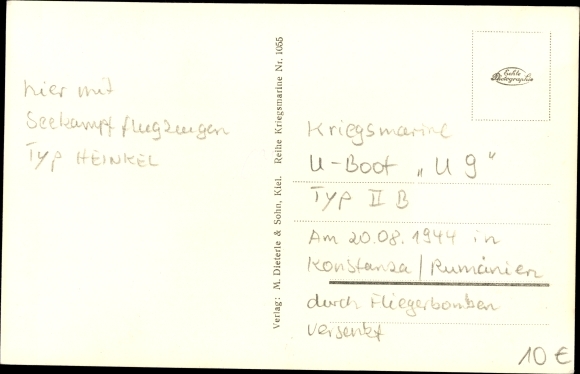 hier mit
Seekampfflugzeugen
Typ HEINKEL
Verlag: M. Dieterle & Sohn, Kiel. Reihe Kriegsmarine Nr. 1055
Echte
Photographie
Kriegsmarine
U-Boot „U 9"
Typ II B
Am 20.08.1944 in
Konstanza/Rumänien
durch Fliegerbomben
versenkt
10 €